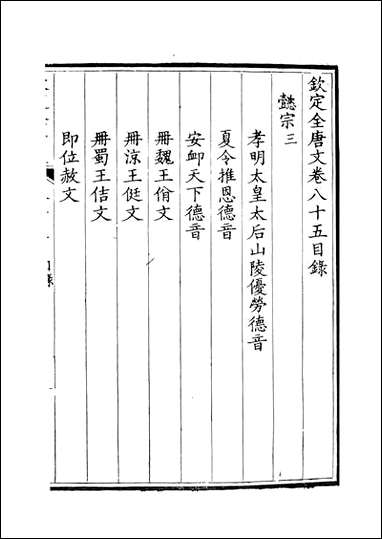 欽定全唐文卷八十五目錄
懿宗三
孝明太皇太后山陵優勞德音
夏令推恩德音
安䘏天下德音
冊魏王佾文
冊涼王侹文
冊蜀王佶文
即位赦文